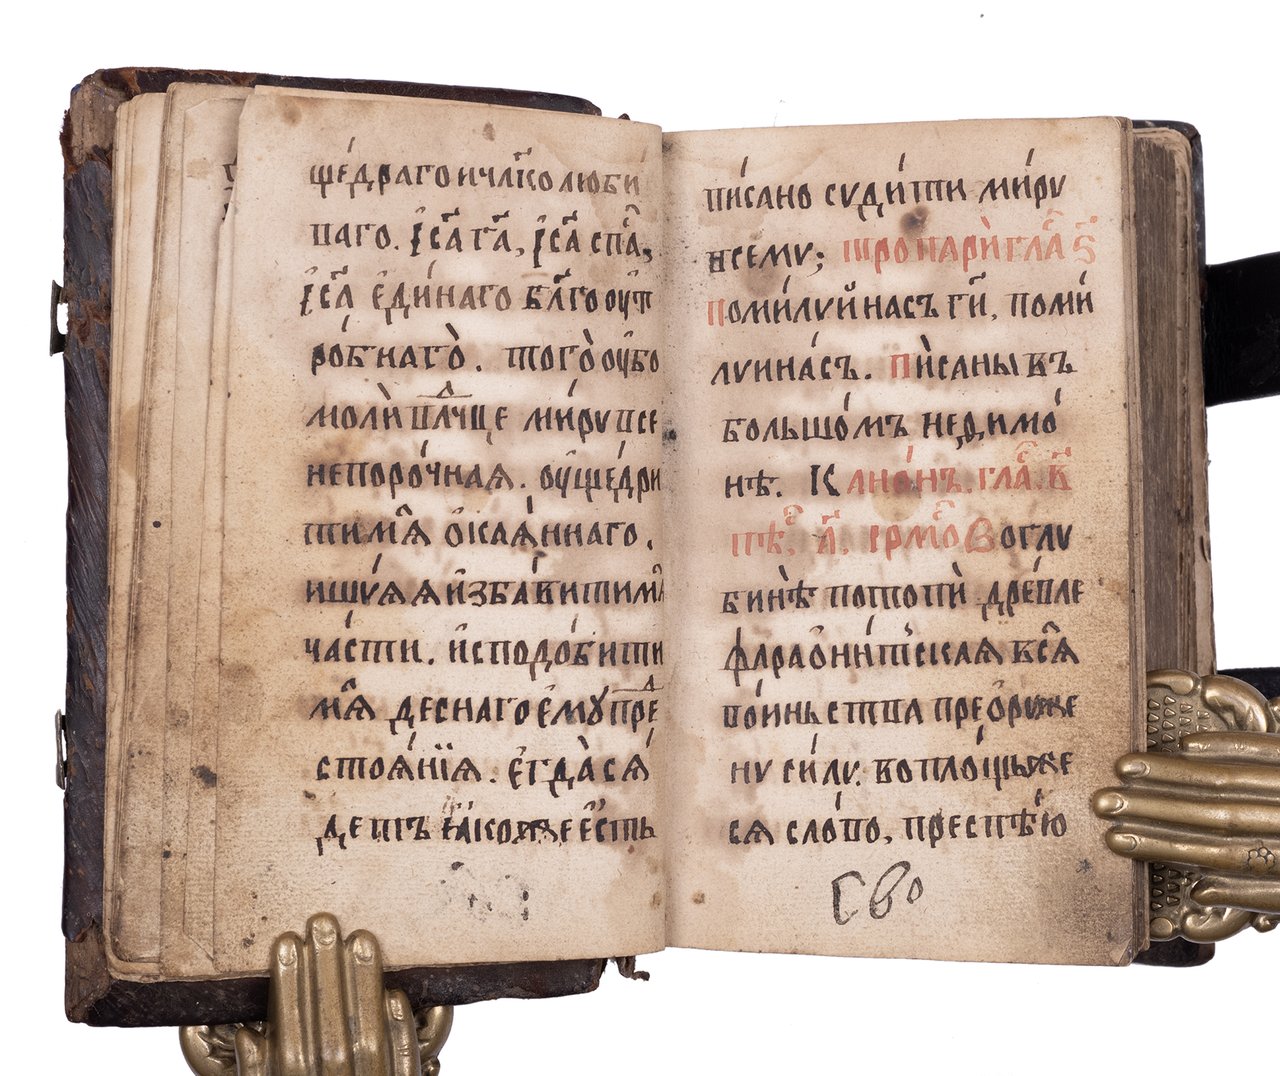 щедрагоичл҃колюби
ваго. і҆с҃а га҃, і҆с҃а спа҃,
і҆с҃а є҆ди́наго бл҃гоꙋт
ро́бнаго̀. того̀ оубо
моли̏ влⷣчце ми́рꙋ все
непоро́чная. оуще́дри
тимѧ̀ ѻ҆кая́ннаго,
ишꙋ́ѧѧ и҆зба́витимѧ
ча́сти. и҆сподо́бити
мѧ̀ деснагое҆мꙋ пре
стоѧ́нїѧ. є҆гда̀ сѧ́
детъ ꙗ҆́коже є҆сть
пи́сано сꙋди́ти ми́рꙋ
всемꙋ; тропари̏ гла҃ ѕ҃
поми́лꙋй насъ гп҃и, поми́
лꙋи на́съ. пи̏саны въ
большо́мъ не́димо́
нѣ. Кано́нъ. гла҃. в҃
пѣ́. а҃. ірмо Воглꙋ
бинѣ̀ потопи̏ дре́вле
фараѻ҆ни́тская всѧ̀
во́иньства преѻ҆рꙋже
нꙋ си́лꙋ. воплощьже
сѧ сло́во, преспѣ́ю
Сво